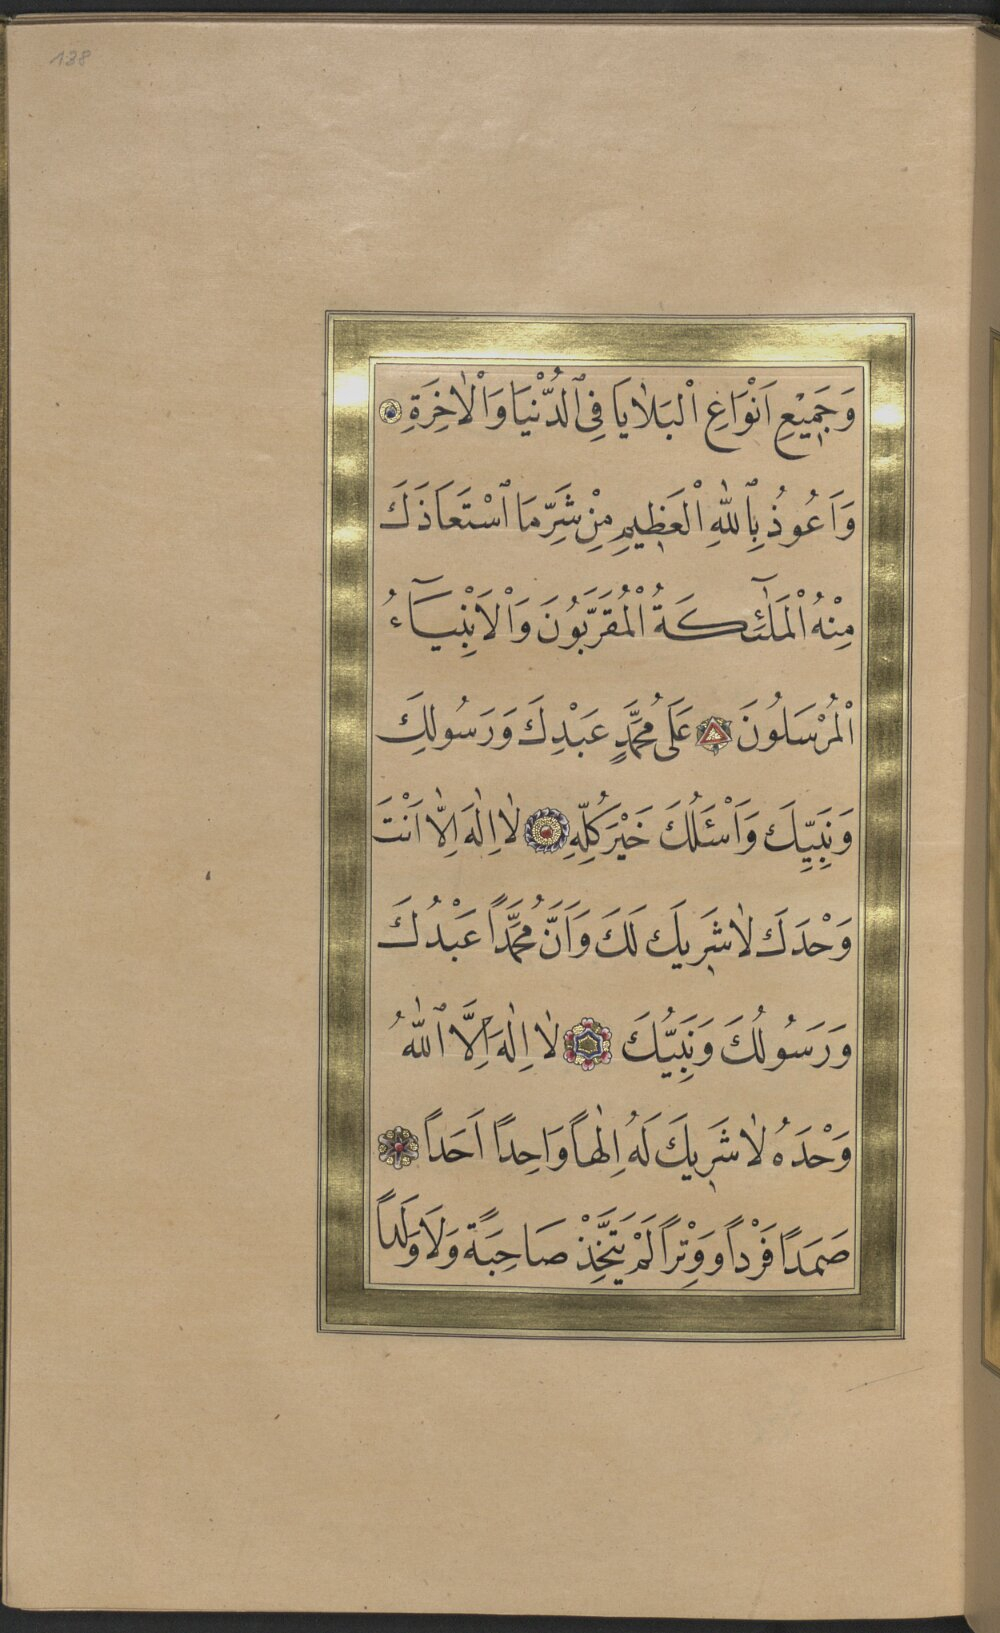 138
وَجَمِيْعِ اَنْوَاعِ الْبَلَايَا فِى الدُّنْيَا وَالْاٰخِرَةِ
وَاَعُوذُ بِاللّٰهِ الْعَظِيمِ مِنْ شَرِّ مَا اسْتَعَاذَكَ
مِنْهُ الْمَلٰٓئِكَةُ الْمُقَرَّبُونَ وَالْاَنْبِيَٓاءُ
الْمُرْسَلُونَ عَلٰى مُحَمَّدٍ عَبْدِكَ وَرَسُولِكَ
وَنَبِيِّكَ وَاَسْئَلُكَ خَيْرَ كُلِّهِ لَا اِلٰهَ اِلَّا اَنْتَ
وَحْدَكَ لَا شَرِيكَ لَكَ وَاَنَّ مُحَمَّدًا عَبْدُكَ
وَرَسُولُكَ وَنَبِيُّكَ لَا اِلٰهَ اِلَّا اللّٰهُ
وَحْدَهُ لَا شَرِيكَ لَهُ اِلٰهًا وَاحِدًا اَحَدًا
صَمَدًا فَرْدًا وَوِتْرًا لَمْ يَتَّخِذْ صَاحِبَةً وَلَا وَلَدًا